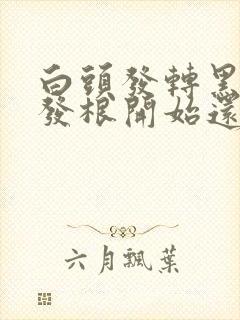 白頭發轉黑
發根開始還
六月飄葉